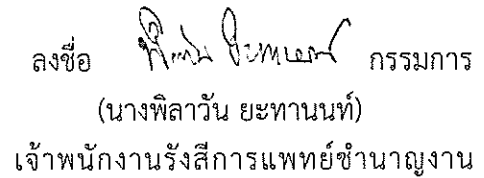 ลงชื่อ กรรมการ
(นางพิลาวัน ยะทานนท์)
เจ้าพนักงานรังสีการแพทย์ชำนาญงาน